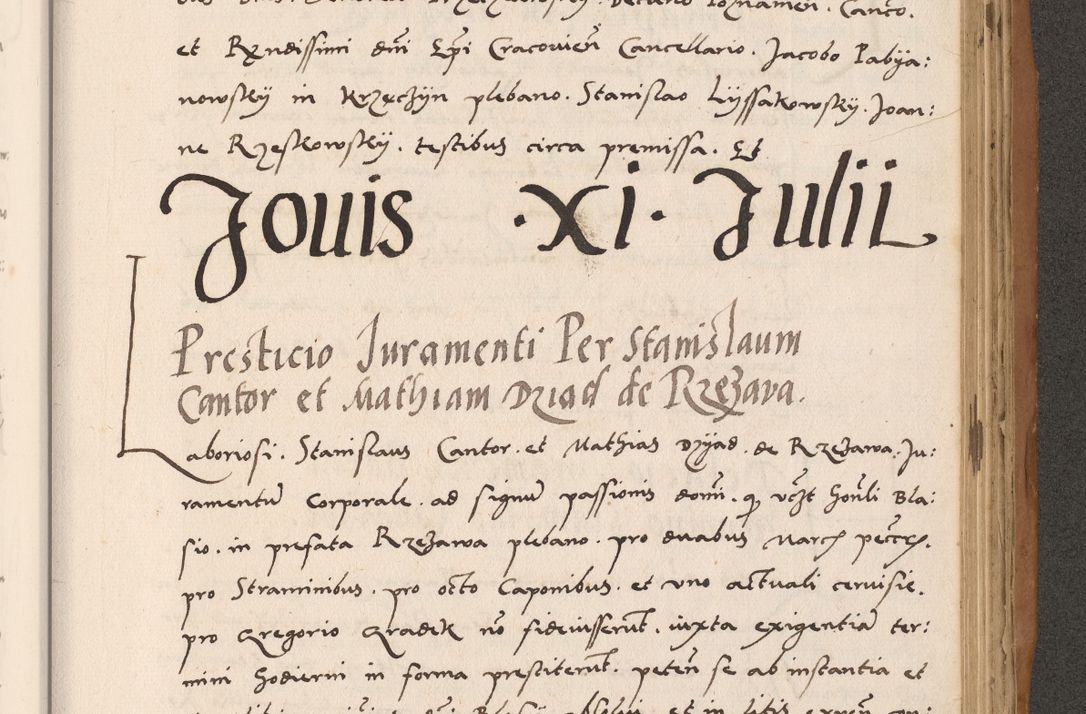 et Rxndissimi dni Epi Cracovien Cancellario. Jacobo Pabya:
nowsky in Krzęczyn plebano. Stanislao Lyssakowsky. Joan:
ne Rzeskowsky. testibus circa premissa. Et
Jouis ·XI· Julii
Presticio Juramenti Per Stanislaum
Cantor et Mathiam Dziad de Rzezava.
Laboriosi. Stanislaus Cantor. et Mathias Dzyad. de Rzezawa. Ju:
ramentu corporale. ad signu passionis domi. q vczt honli Bla:
sio. in prefata Rzezawa plebano. pro duabus Marc pecc.
pro Straminibus. pro octo Caponibus. et uno actuali cervisie.
pro Gregorio Gradek no fideiusserut. iuxta exigentia ter:
mini hodierni in forma prestiterut. peten se ab instantia et